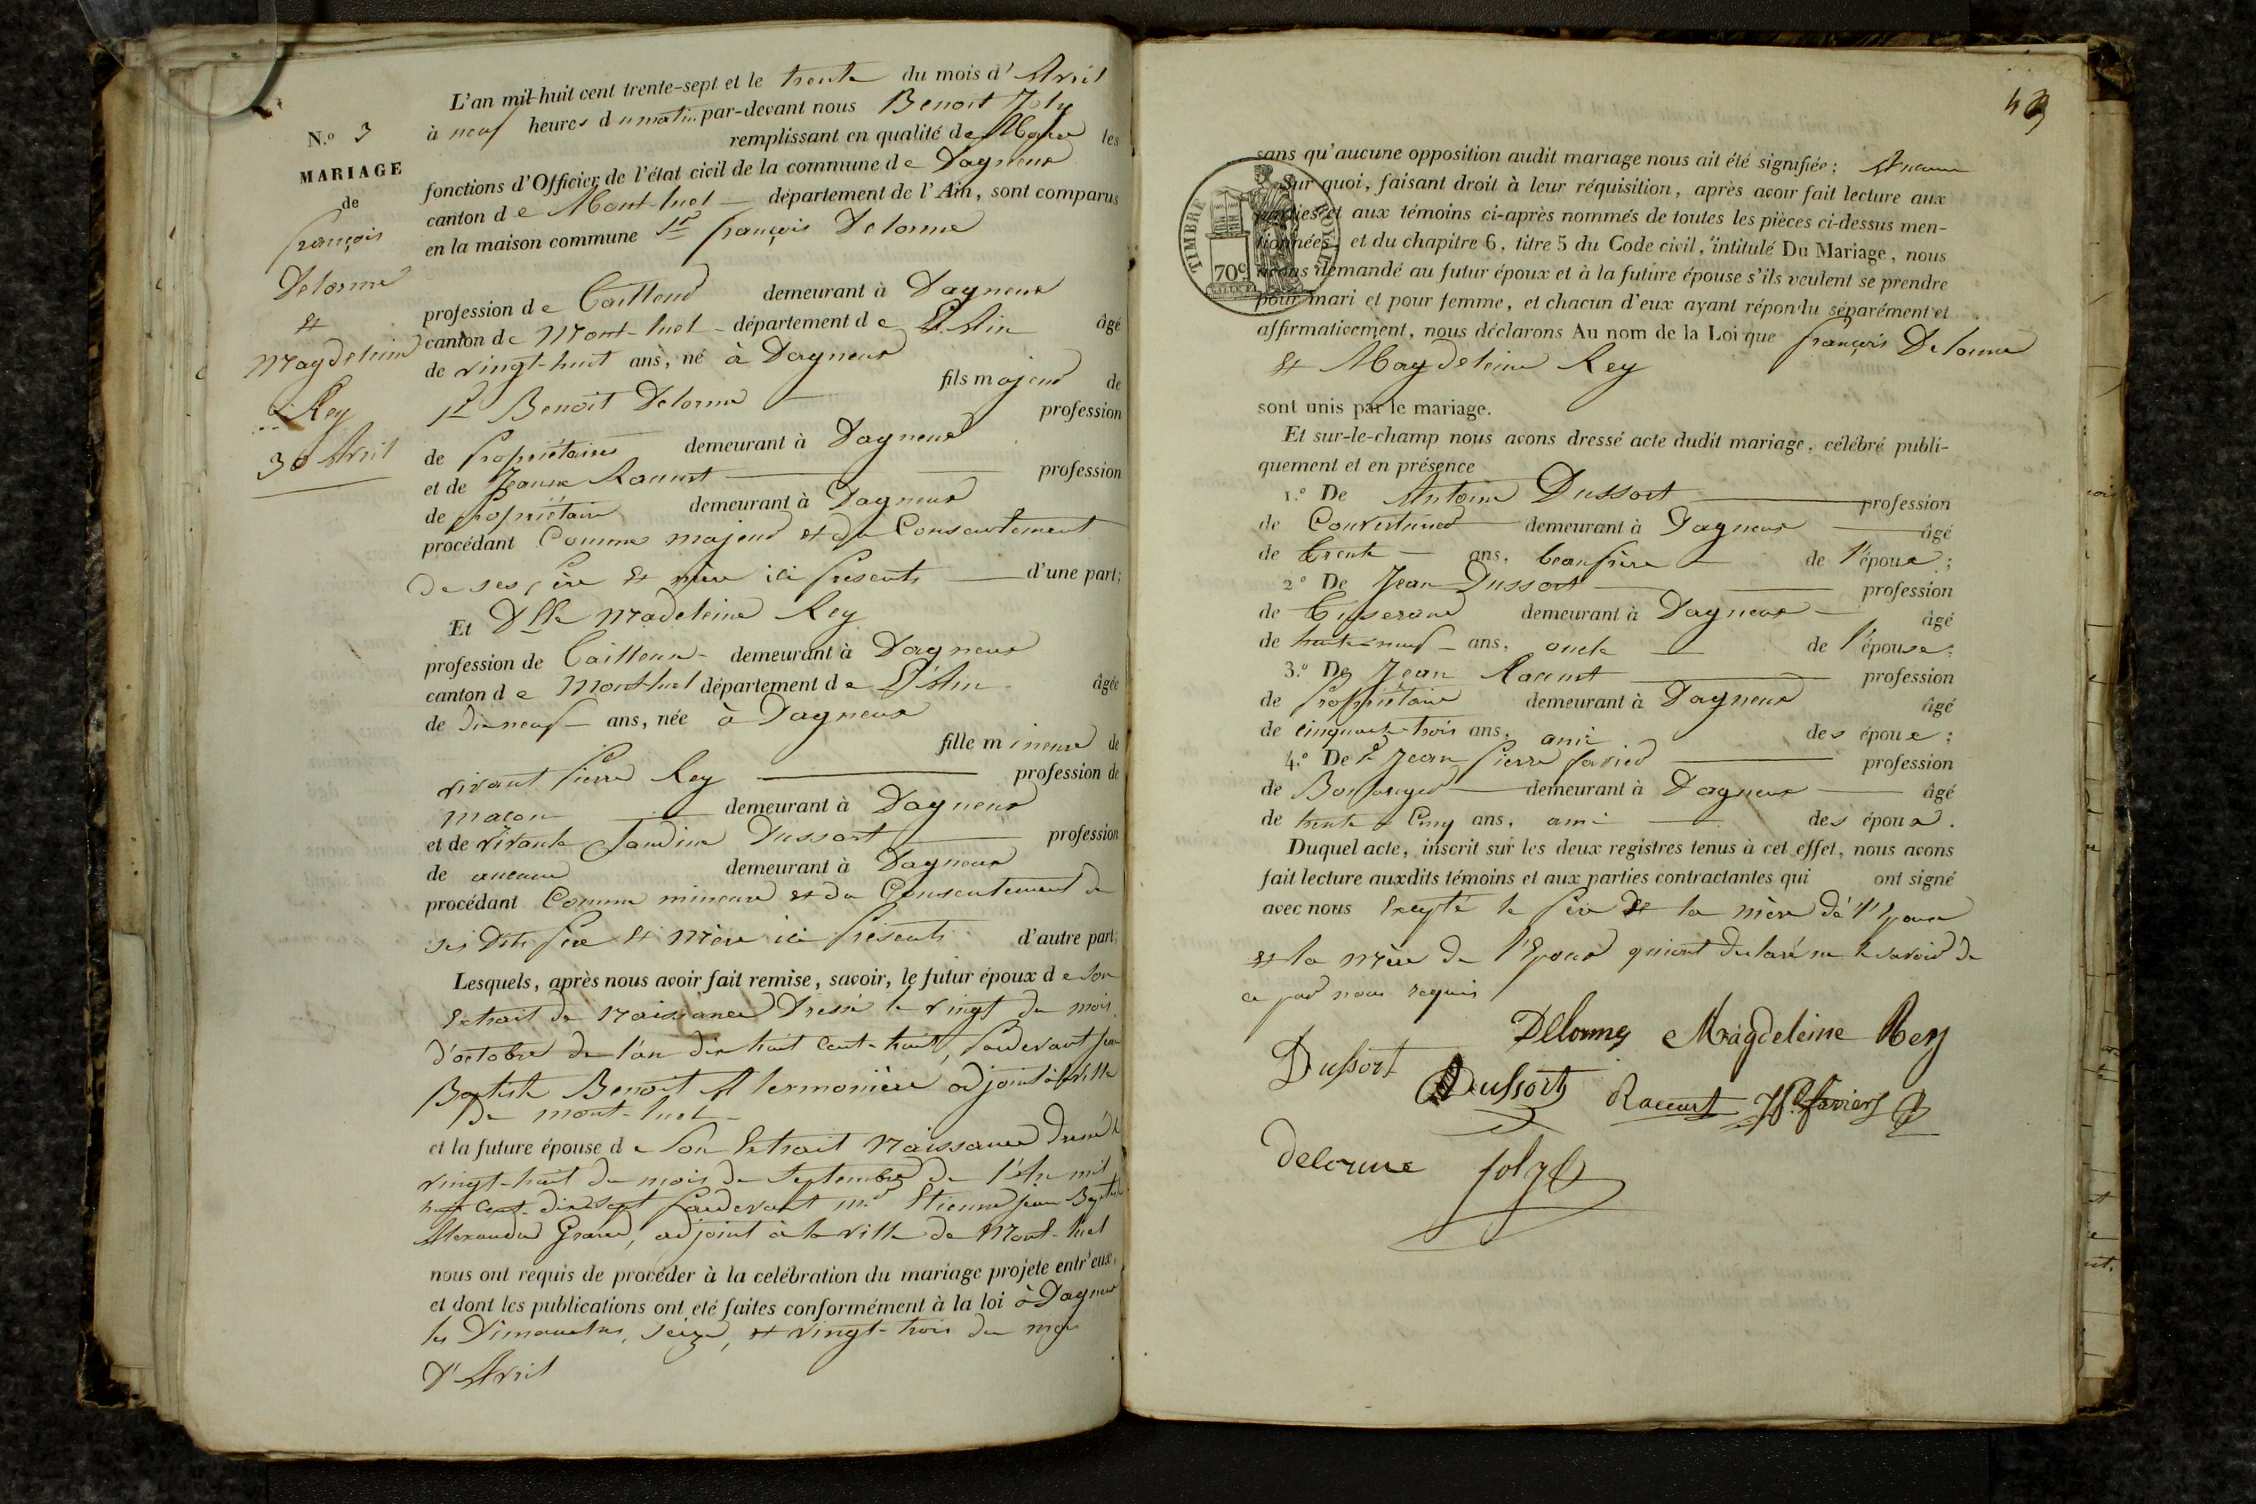 N.º 3
MARIAGE
de
françois
Delorme
et
Magdeleine
Rey
30 Avril
L'an mil-huit cent trente-sept et le trente du mois d'Avril
à neuf heures du matin par-devant nous Benoit Joly
remplissant en qualité de Maire les
fonctions d'Officier de l'état civil de la commune de Dagneux
canton de Mont-luel département de l'Ain, sont comparus
en la maison commune Sr françois Delorme
profession de Tailleur demeurant à Dagneux
canton de Mont-luel département de L'Ain âgé
de vingt-huit ans, né à Dagneux
fils majeur de
Sr Benoit Delorme profession
de propriétaire demeurant à Dagneux
et de Jeanne Raccurt profession
de propriétaire demeurant à Dagneux
procédant Comme majeur et du Consentement
de ses père et mère ici présents d'une part;
Et Dlle Madeleine Rey
profession de Tailleuse demeurant à Dagneux
canton de Mont-luel département de L'Ain âgée
de dix neuf ans, née à Dagneux
fille mineure de
vivant pierre Rey profession de
maçon demeurant à Dagneux
et de vivante Claudine Dussort profession
de aucune demeurant à Dagneux
procédant Comme mineure et du Consentement de
ses dits père et mère ici présents d'autre part;
Lesquels, après nous avoir fait remise, savoir, le futur époux de son
Extrait de Naissance Dressé le vingt du mois
d'octobre de l'an dix huit cent-huit, pardevant jean
Baptiste Benoit adjoint à la ville
de mont-luel
et la future épouse de son Extrait Naissance dressé le
vingt-huit du mois de Septembre de l'An mil
huit cent dix sept pardevant mr Etienne jean Baptiste
Alexandre Grand, adjoint à la ville de Mont-luel
nous ont requis de procéder à la celébration du mariage projeté entr'eux,
et dont les publications ont été faites conformément à la loi à Dagneux
les Dimanches, seize, et vingt-trois du mois
d'Avril
43
sans qu'aucune opposition audit mariage nous ait été signifiée; Aucune
Sur quoi, faisant droit à leur réquisition, après avoir fait lecture aux
parties et aux témoins ci-après nommés de toutes les pièces ci-dessus men-
tionnées, et du chapitre 6, titre 5 du Code civil, intitulé Du Mariage, nous
avons demandé au futur époux et à la future épouse s'ils veulent se prendre
pour mari et pour femme, et chacun d'eux ayant répondu séparément et
affirmativement, nous déclarons Au nom de la Loi que françois Delorme
et Magdeleine Rey
TIMBRE ROYAL
70c
sont unis par le mariage.
Et sur-le-champ nous avons dressé acte dudit mariage, célébré publi-
quement et en présence
1.º De Antoine Dussort profession
de demeurant à Dagneux âgé
de trente ans, beaufrère de l'époux;
2º De Jean Dussort profession
de Tisserand demeurant à Dagneux âgé
de trente-neuf ans, oncle de l'épouse;
3.º De Jean Raccurt profession
de propriétaire demeurant à Dagneux âgé
de cinquante-trois ans, ami des époux;
4.º De Sr Jean pierre favier profession
de Boulanger demeurant à Dagneux âgé
de trente Cinq ans, ami des époux.
Duquel acte, inscrit sur les deux registres tenus à cet effet, nous avons
fait lecture auxdits témoins et aux parties contractantes qui ont signé
avec nous Excepté le père et la mère de l'Epouse
et la mère de l'Epoux qui ont déclaré ne le savoir de
ce par nous requis
Delorme Magdeleine Rey
Dussort Dussort Raccurt JP favier
delorme Joly